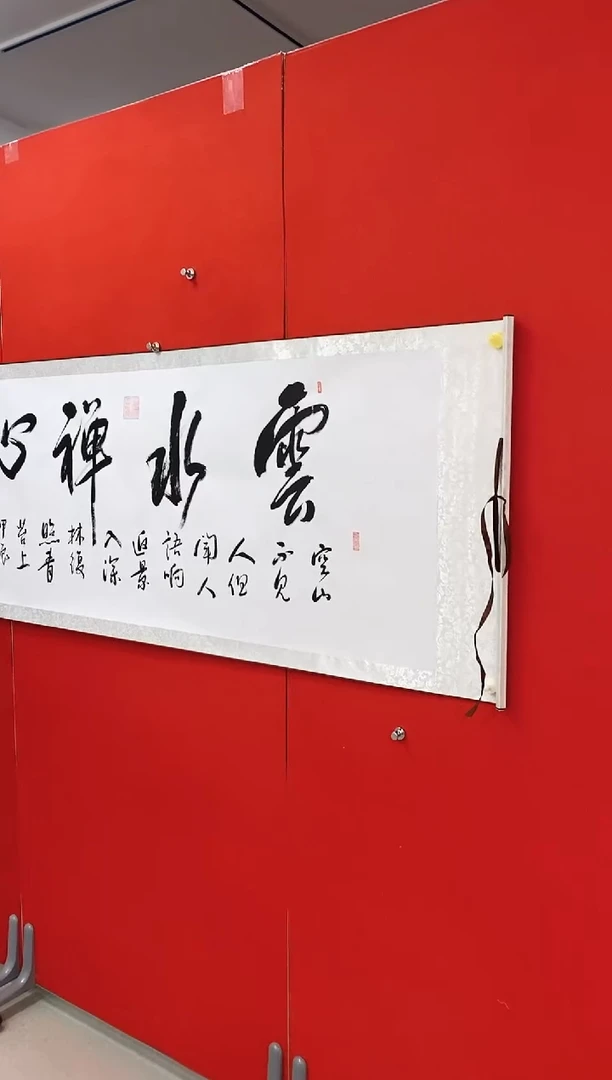 雲水禅心
空山
不见
人但
聞人
語响
返景
入深
林復
照青
苔上